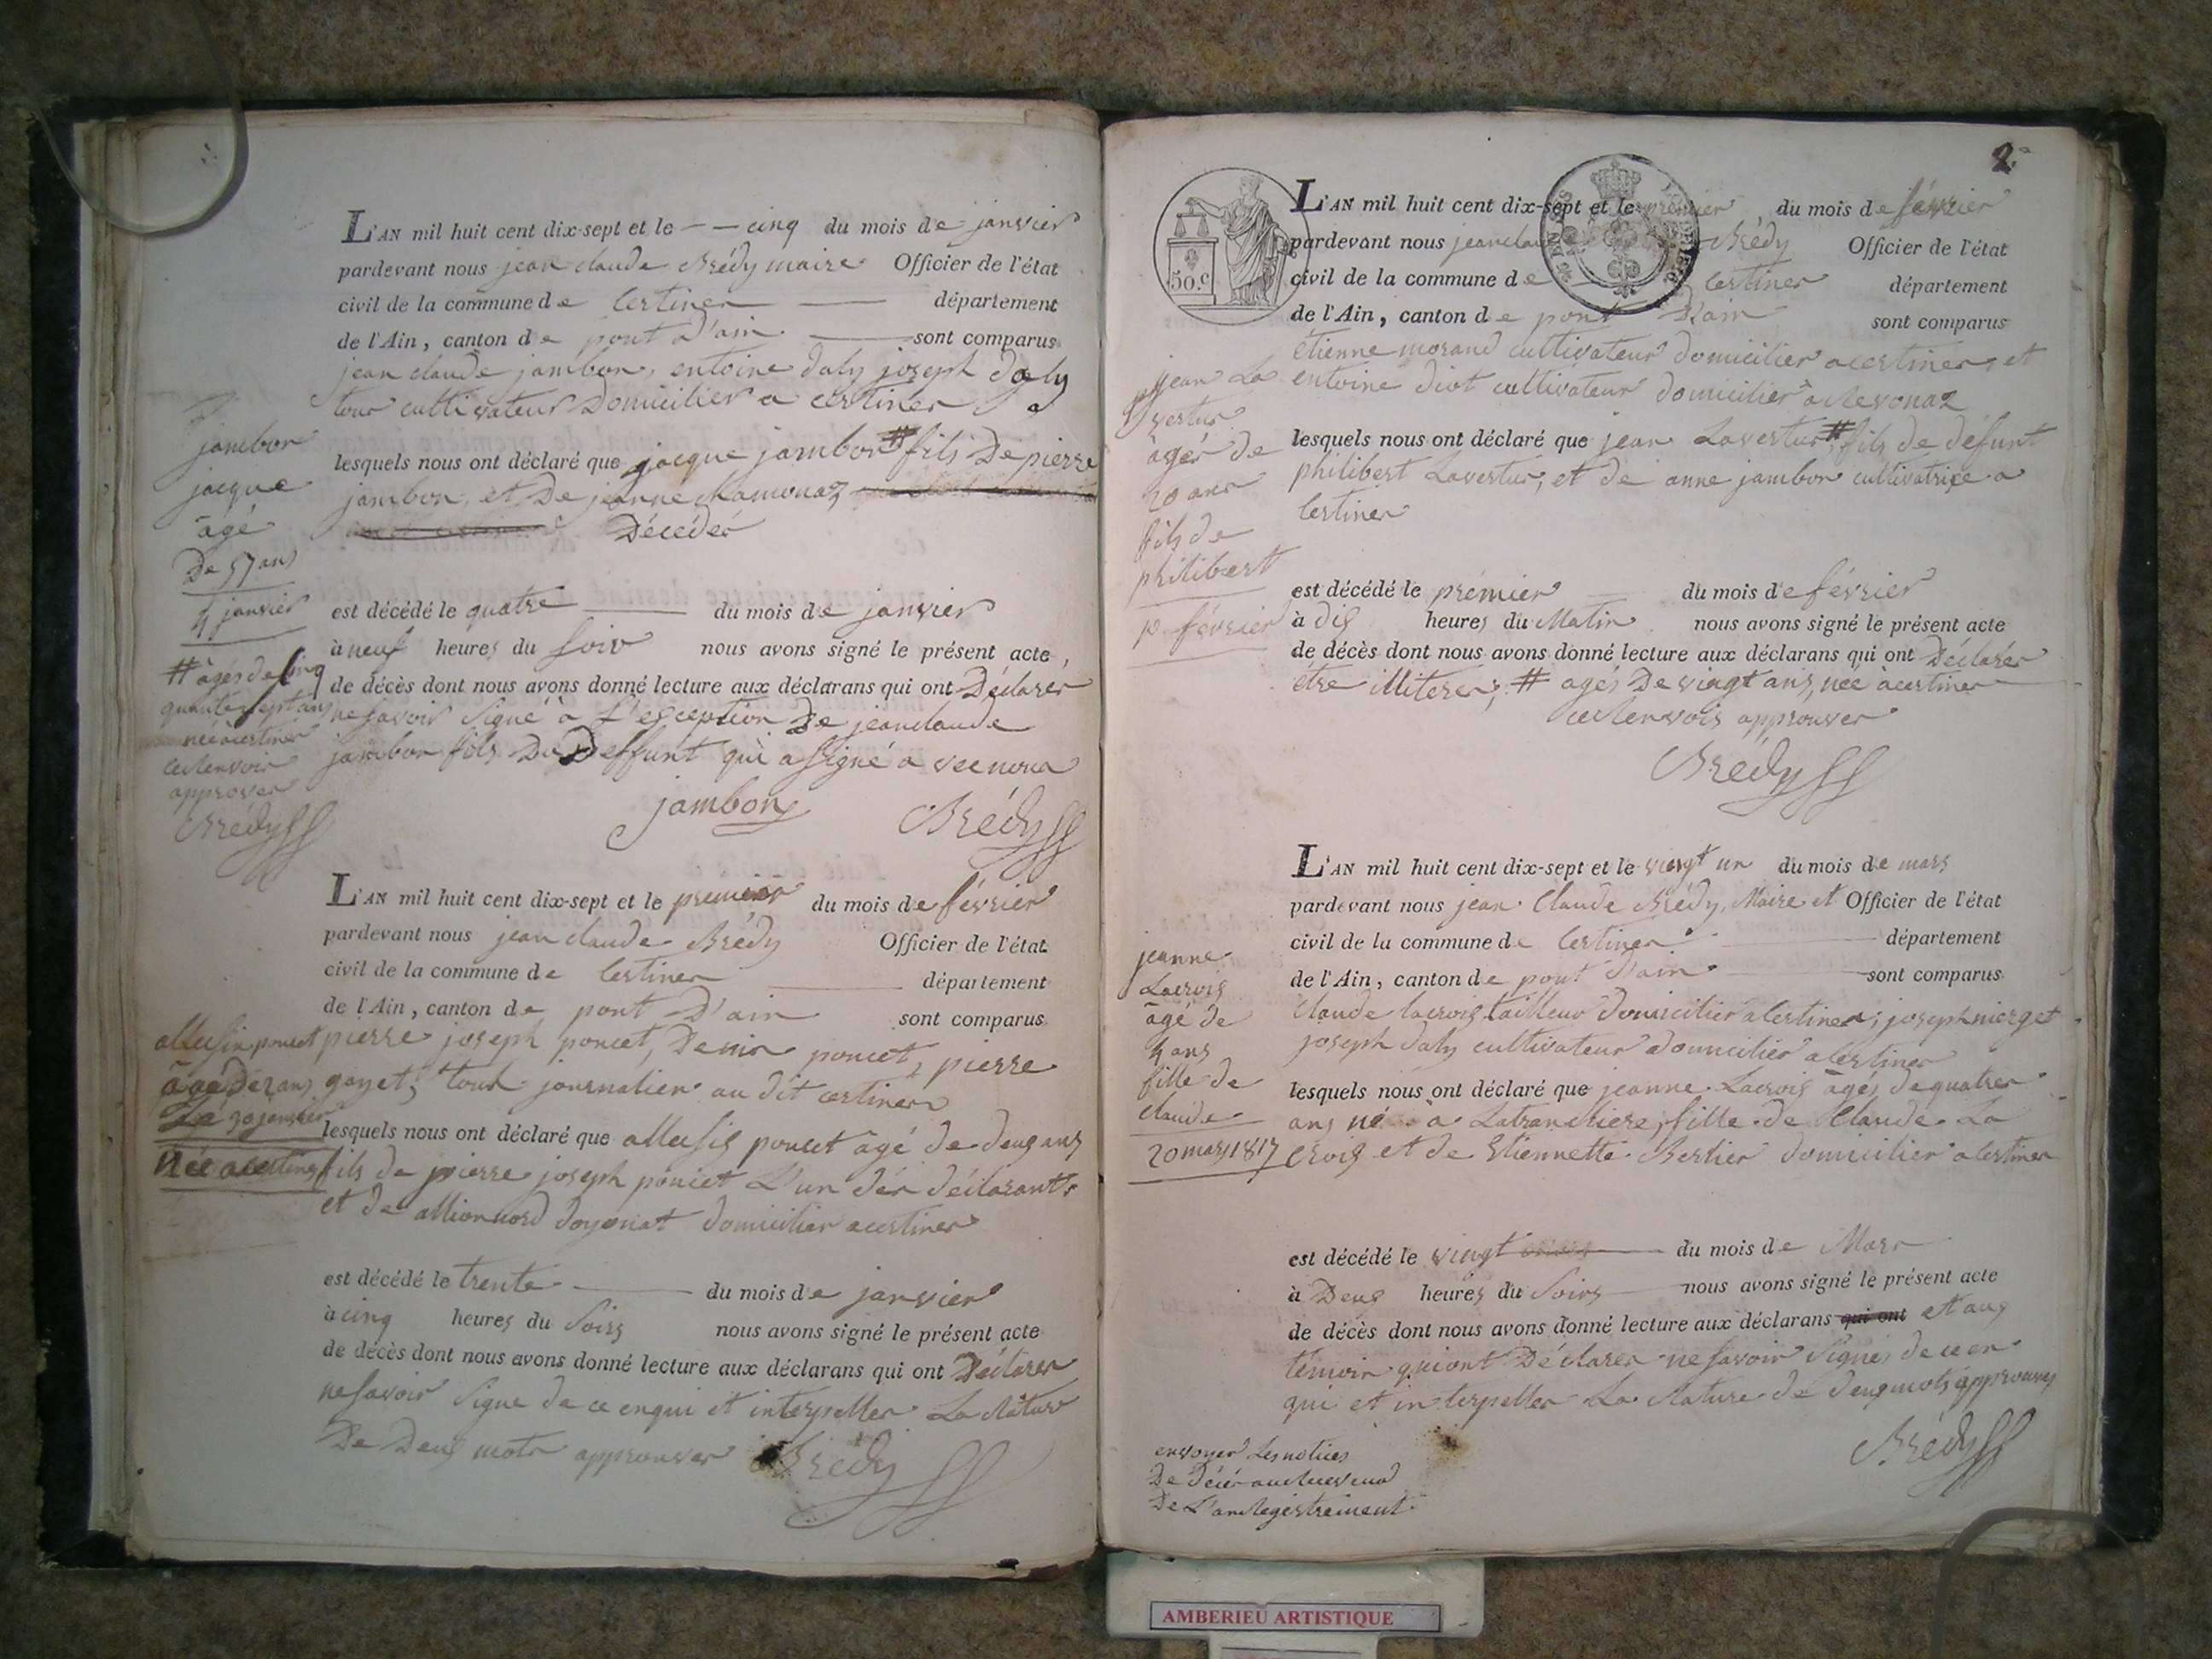 L'AN mil huit cent dix-sept et le cinq du mois de janvier
pardevant nous jean claude Brédy maire Officier de l'état
civil de la commune de Certines département
de l'Ain, canton de pont d'ain sont comparus
jean claude jambon, entoine daly joseph daly
tous cultivateur Domicilier a certines
lesquels nous ont déclaré que jacque jambon # fils De pierre
jambon, et De jeanne
Décédér
est décédé le quatre du mois de janvier
à neuf heures du soir nous avons signé le présent acte,
de décès dont nous avons donné lecture aux déclarans qui ont Déclarer
ne savoir signé à L'exception De jean claude
jambon fils Du Deffunt qui a signé a vec nous
jambon Brédy
jambon
jacque
âgé
De 57 ans
4 janvier
# âgés de cinq
quante sept ans
née a certines
approuver
Brédy
L'AN mil huit cent dix-sept et le premier du mois de février
pardevant nous jean claude Brédy Officier de l'état
civil de la commune de Certines département
de l'Ain, canton de pont D'ain sont comparus
pierre joseph poncet, Denis poncet, pierre
gayet; tous journalier au dit certines
lesquels nous ont déclaré que poncet âgé de deux ans
fils de pierre joseph poncet L'un dés déclarants
et de doyonat domicilier a certines
est décédé le trente du mois de janvier
à cinq heures du Soirs nous avons signé le présent acte
de décès dont nous avons donné lecture aux déclarans qui ont Déclarer
ne savoir signe de ce enqui et interpeller La
De Deux mots approuver Brédy
poncet
âgé De 2 ans
Le 30 janvier
Née a certines
2
50.c
L'AN mil huit cent dix-sept et le premier du mois de février
pardevant nous jean claude Brédy Officier de l'état
civil de la commune de Certines département
de l'Ain, canton de pont D'ain sont comparus
étienne morand cultivateur domicilier a certines, et
entoine diot cultivateur domicilier à Revonaz
lesquels nous ont déclaré que jean Lavertur # fils de défunt
philibert Lavertur, et de anne jambon cultivatrice a
Certines
est décédé le prémier du mois de février
à dix heures du Matin nous avons signé le présent acte
de décès dont nous avons donné lecture aux déclarans qui ont Déclarér
étre illiterés; # agés De vingt ans, née à certines
approuver
Brédy
jean La
vertur
âgér de
20 ans
fils de
philibert
février
L'AN mil huit cent dix-sept et le vingt un du mois de mars
pardevant nous jean Claude Brédy, Maire et Officier de l'état
civil de la commune de Certines département
de l'Ain, canton de pont D'ain sont comparus
Claude lacroix tailleur domicilier a Certines; joseph
joseph daly cultivateur domicilier a Certines
lesquels nous ont déclaré que jeanne Lacroix âgés de quatres
ans né a Latranchiere, fille de Claude La
Croix et de Etiennette Berlier domicilier a Certines
est décédé le vingt du mois de Mars
à Deux heures du Soirs nous avons signé le présent acte
de décès dont nous avons donné lecture aux déclarans qui ont et aux
témoin qui ont Déclarer ne savoir Signé de ce en
qui et interpeller La de deux mots approuver
Brédy
jeanne
Lacroix
âgé de
4 ans
fille de
Claude
20 mars 1817
envoyer Les notices
De
De L'anregistrement
AMBERIEU ARTISTIQUE